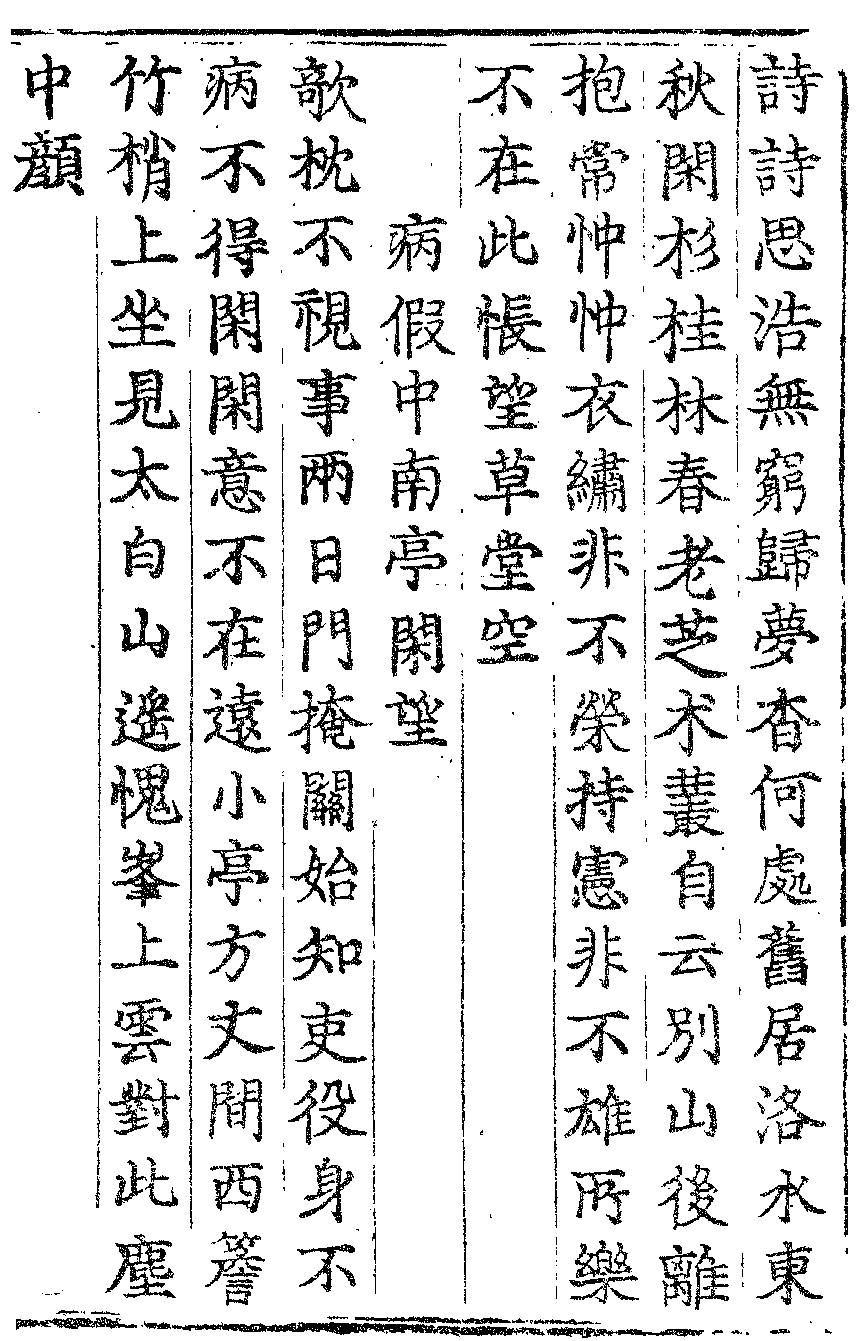 詩詩思浩無窮歸夢杳何處舊居洛水東
秋閑杉桂林春老芝朮叢自云別山後離
抱常忡忡衣繡非不榮持憲非不雄所樂
不在此悵望草堂空
病假中南亭閑望
欹枕不視事兩日門掩關始知吏役身不
病不得閑閑意不在遠小亭方丈間西簷
竹梢上坐見太白山遙愧峯上雲對此塵
中顔